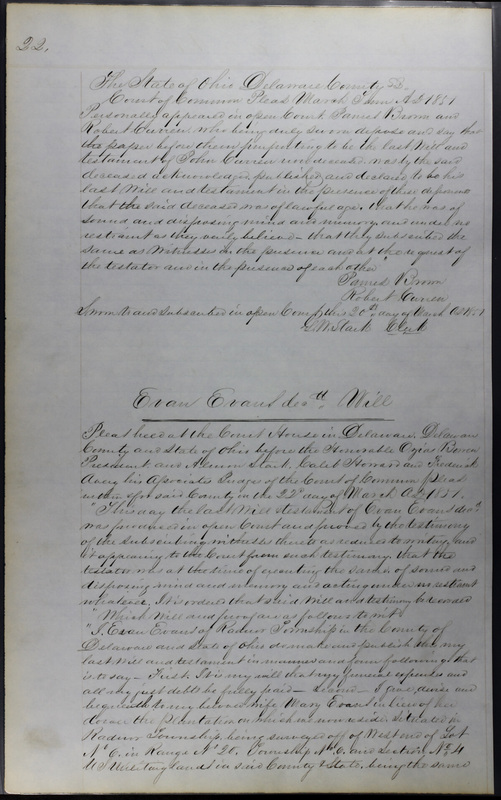 22.
The State of Ohio Delaware County Ss.
Court of Common Pleas March Term A.D. 1851
Personally appeared in open Court James Brown and
Robert Curren who being duly sworn depose and say that
the paper before them purporting to be the last Will and
testament of John Curren now deceased was by the said
deceased acknowledged, published and declared to be his
last Will and testament in the presence of these deponents
that the said deceased was of lawful age. that he was of
sound and disposing mind and memory, and under no
restraint as they verily believe - that they subscribed the
same as Witnesses in the presence and at the request of
the testator and in the presence of each other
James Brown
Robert Curren
Sworn to and Subscribed in open Court this 20th day of March A.D. 1851
Clerk
Evan Evans' decd. Will
Pleas had at the Court House in Delaware, Delaware
County and State of Ohio before the Honorable Ozias Bowen
President and Aherson Stark, Caleb Howard and Frederick
Avery his Associates Judges of the Court of Common Pleas
within & for said County in the 22d day of March A.D. 1851.
"This day the last Will & testament of Evan Evans decd.
was produced in open Court and proved by the testimony
of the subscribing witnesses thereto as reduced to writing, and
it appearing to the Court from such testimony that the
testator was at the time of executing the same of sound and
disposing mind and memory and acting under no restraint
whatever, It is ordered that said Will and testimony be recorded
"Which Will and proof are as follows to wit"
"I, Evan Evans of Radnor Township in the County of
Delaware and State of Ohio do make and publish this my
last Will and testament in manner and form following that
is to say - First. It is my will that my funeral expenses and
all my just debts be fully paid - Second - I give, devise and
bequeath to my beloved wife Mary Evans in lieu of her
dower the Plantation on which we now reside situated in
Radnor Township, being surveyed off of West end of Lot
No 6, in Range No 20, Township No 6, and Section No 4
U S Military lands in said County & State, being the same